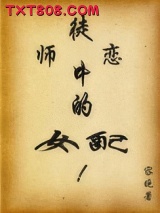 TXT808.com
师徒恋
中的
女配！
著